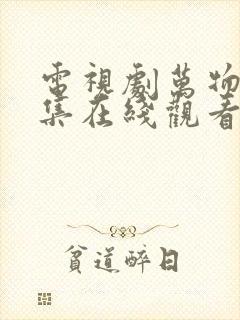 電視劇萬物
集在綫觀看
貧道醉日